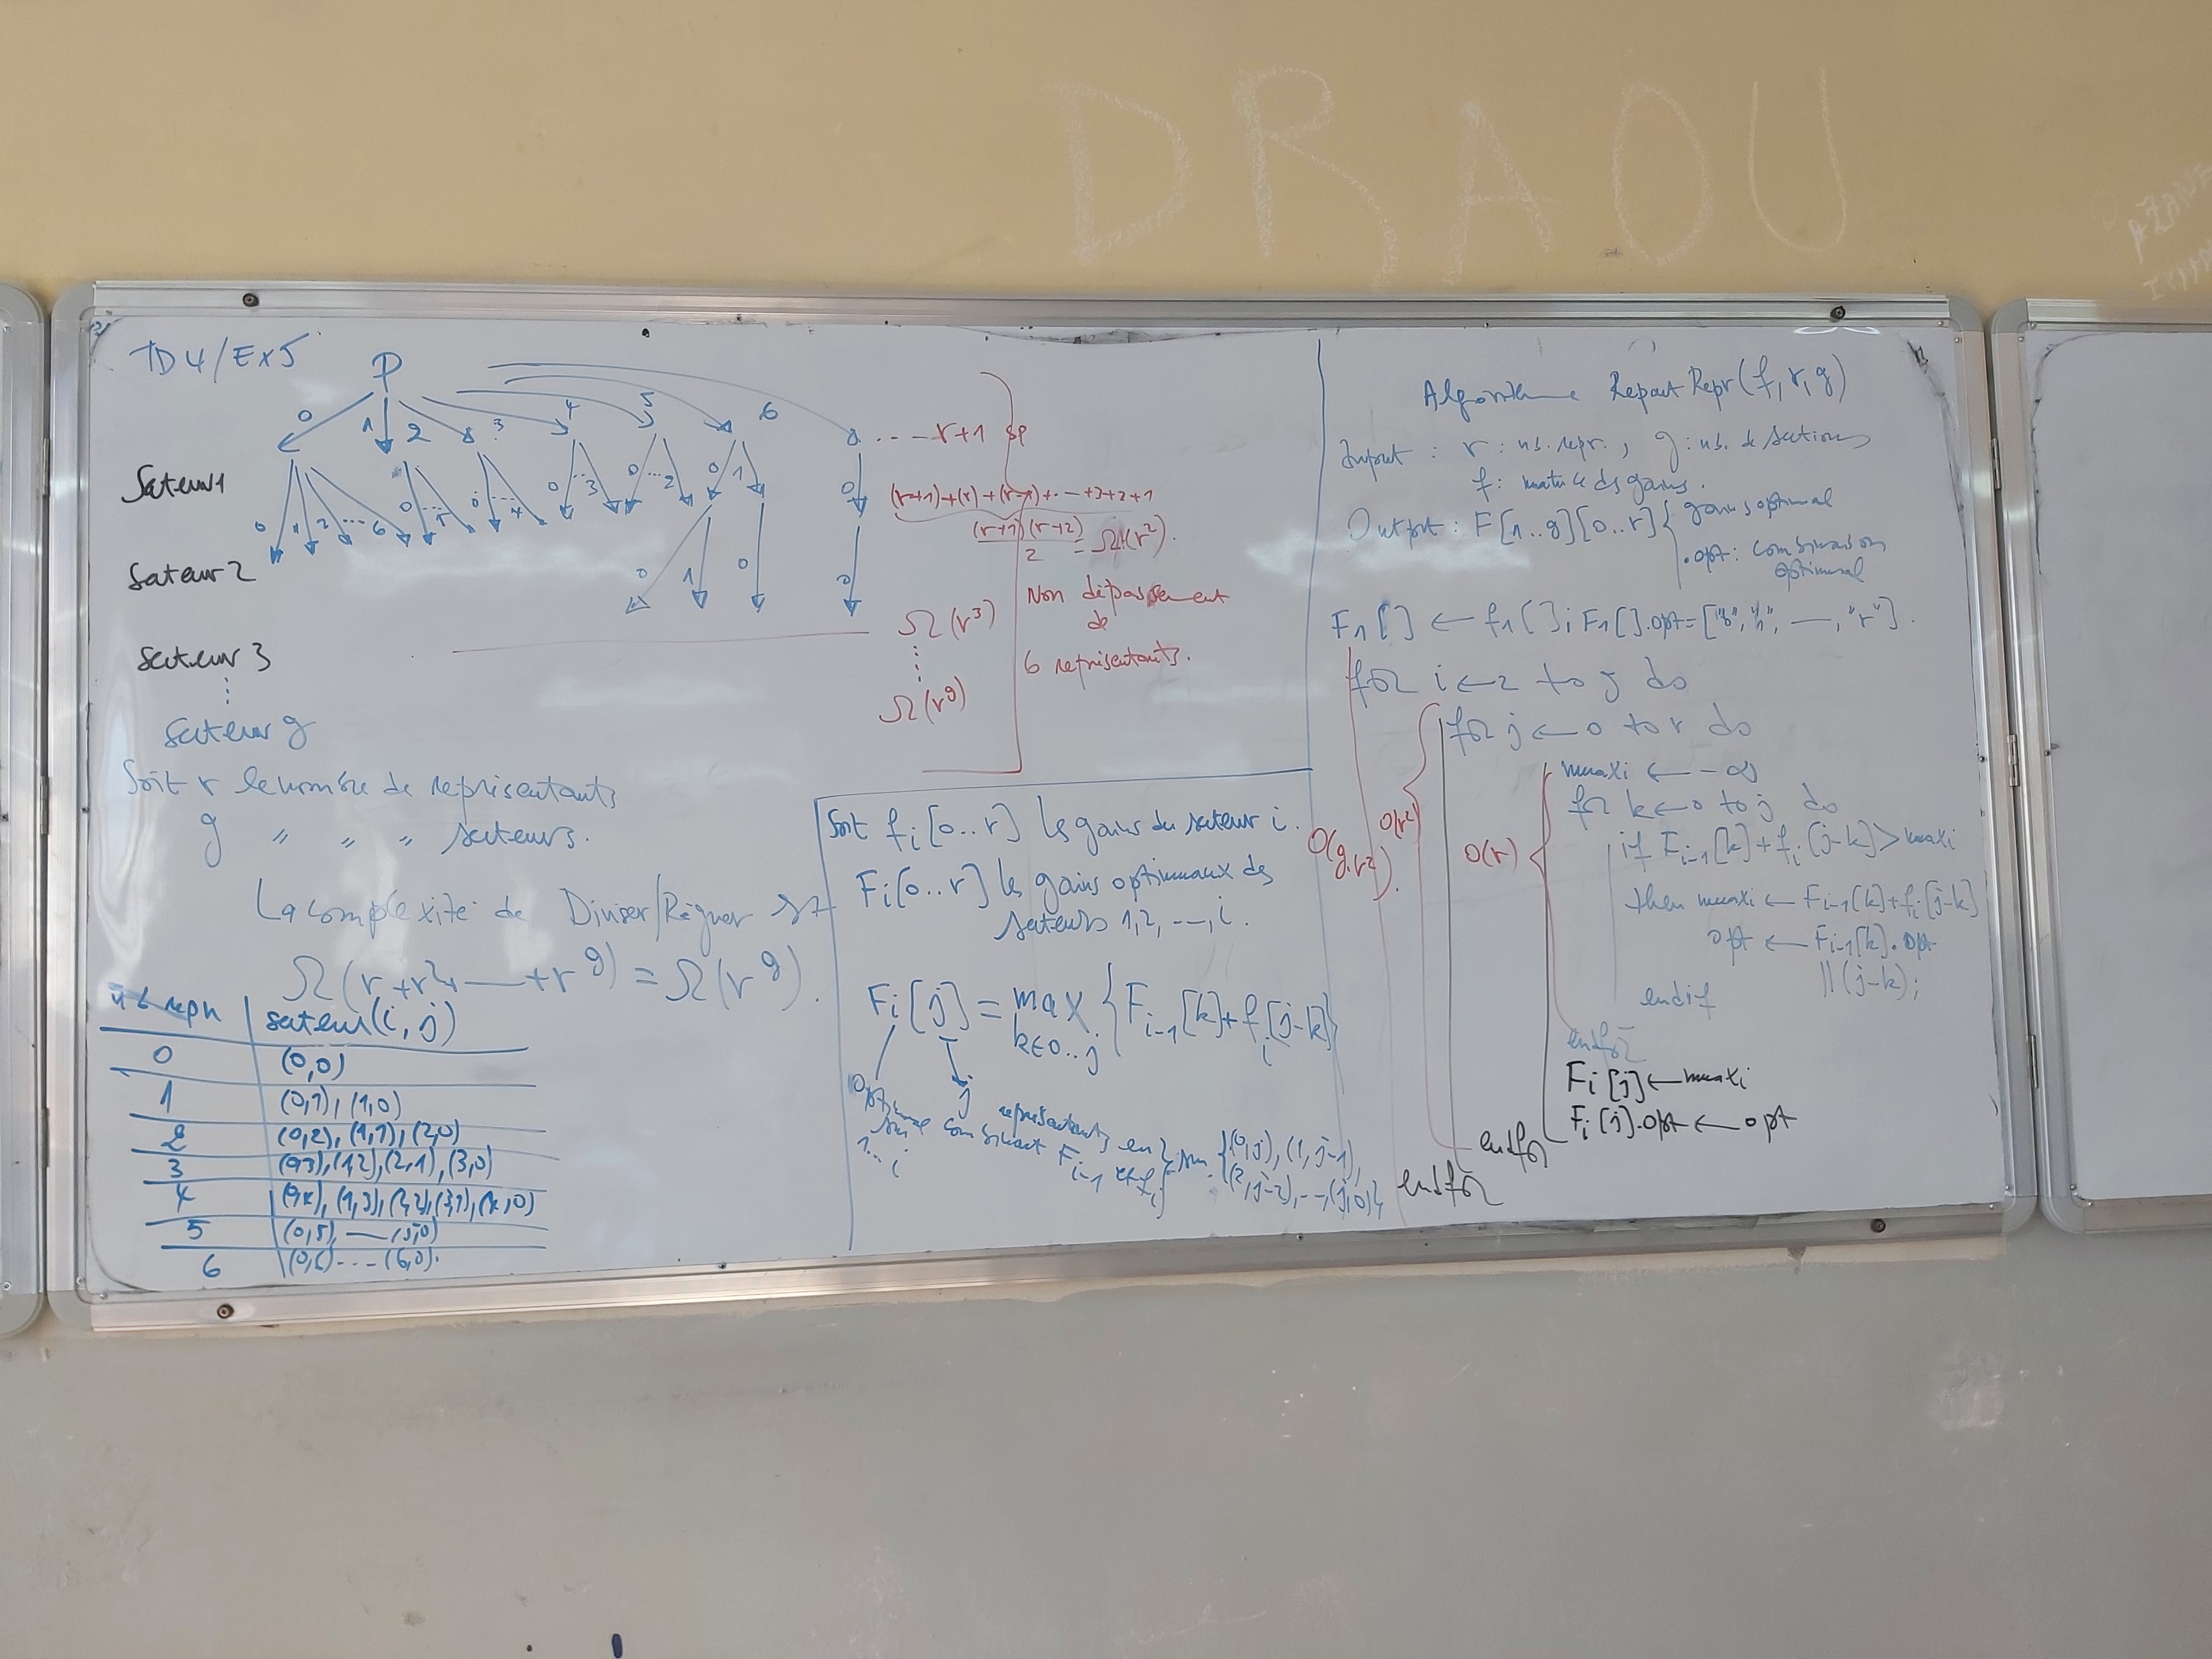 DRAOU
TD4/Ex5
P
0 1 2 3 4 5 6
... r+1 sp
Sateur1
0 1 2 ... 6 0 ... 5 0 ... 4 0 ... 3 0 ... 2 0 1 0
(r+1)+(r)+(r-1)+...+3+2+1
(r+1)(r+2)
2
= Ω(r²).
Sateur2
0 1 0 0
Ω(r³)
Non dépassement
de
6 représentants.
Sateur 3
Ω(r^g)
Sateur g
Soit r le nombre de représentants
g " " " sateurs.
La complexité de Diviser/Régner est
Ω(r+r²+ — +r^g) = Ω(r^g).
nb repr | sateur(i,j)
0 | (0,0)
1 | (0,1), (1,0)
2 | (0,2), (1,1), (2,0)
3 | (0,3), (1,2), (2,1), (3,0)
4 | (0,4), (1,3), (2,2), (3,1), (4,0)
5 | (0,5), — (5,0)
6 | (0,6) - - - (6,0).
Soit fi[0..r] les gains du sateur i.
Fi[0..r] les gains optimaux des
sateurs 1,2, ---, i.
Fi[j] = max { Fi-1[k] + fi[j-k] }
k∈0..j
optimal
sur
1...i
j représentants en
combinant Fi-1 et fi
sur {(0,j), (1,j-1),
(2,j-2), --, (j,0)}
Algorithme RepartRepr(f, r, g)
Input : r : nb. repr. , g : nb. de sections
f : matrice ds gains.
Output : F[1..g][0..r] { gains optimal
.opt : combinaison
optimal
F1[] ← f1[]; F1[].opt = ["0", "1", —, "r"].
for i ← 2 to g do
for j ← 0 to r do
maxi ← -∞
for k ← 0 to j do
if Fi-1[k] + fi[j-k] > maxi
then maxi ← Fi-1[k] + fi[j-k]
opt ← Fi-1[k].opt
|| (j-k);
endif
endfor
Fi[j] ← maxi
Fi[j].opt ← opt
endfor
endfor
O(g.r²).
O(r²)
O(r)